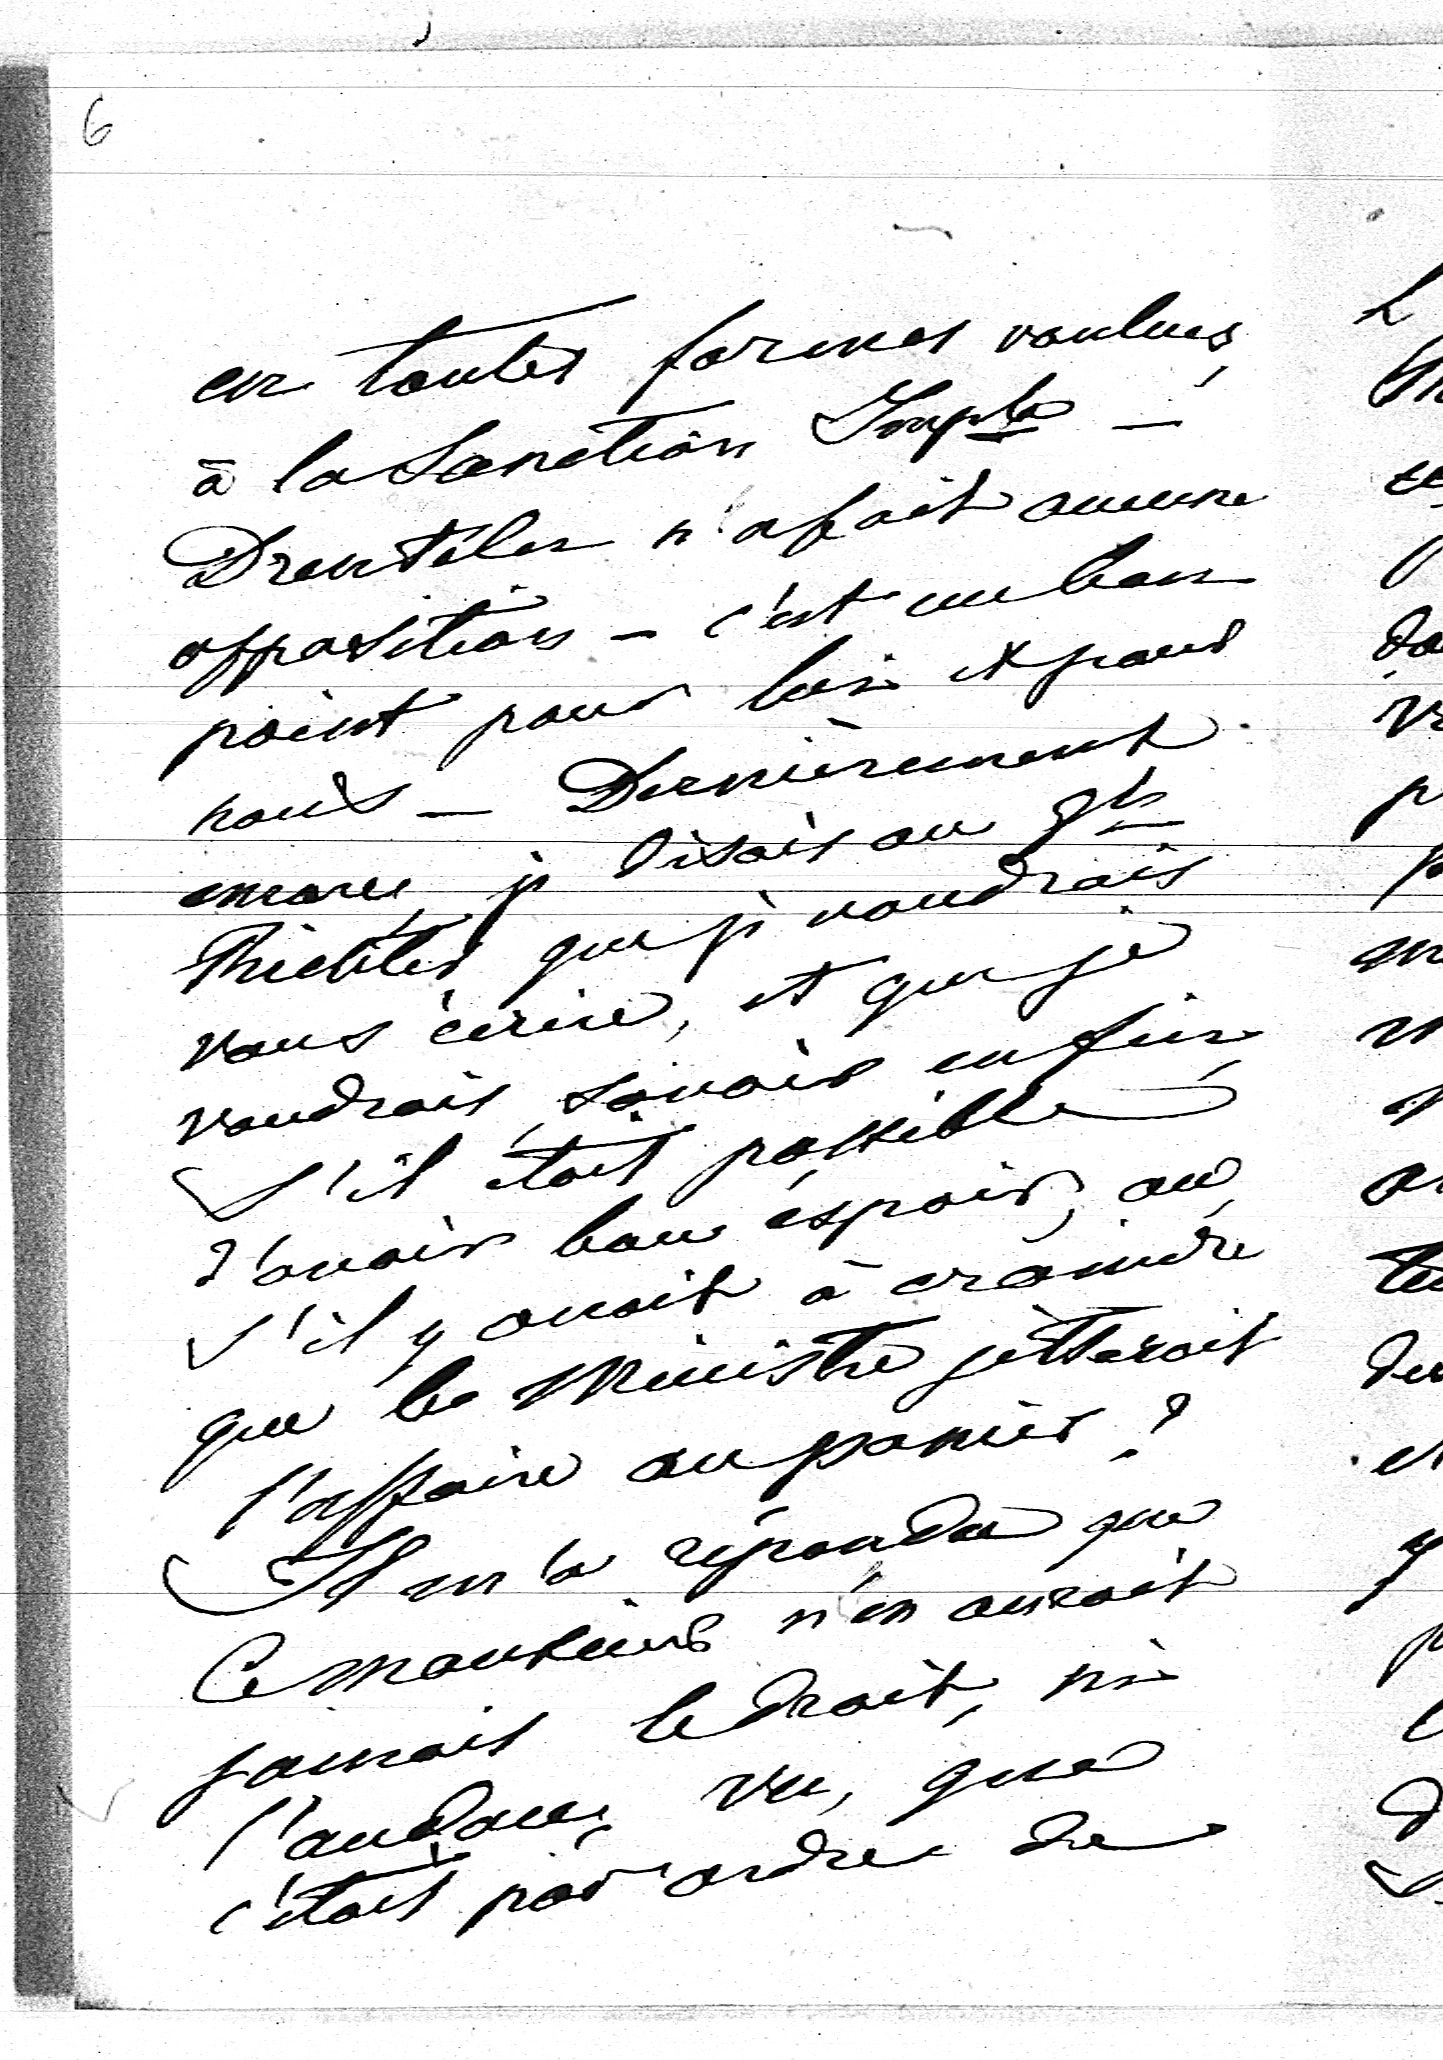 6
en toutes formes voulues,
à la Sanction Imp<u>le</u> –
Drenteler n'a fait aucune
opposition – c'est un bon
point pour lui et pour
nous – Dernièrement
encore, je disais au G<u>l</u>
Richter que je voudrais
vous écrire, et que je
voudrais savoir enfin,
s'il était possible
d'avoir bon espoir, ou,
s'il y avait à craindre
que le Ministre jetterait
l'affaire au panier?
Il m'a répondu que
Ce monsieur n'en aurait
jamais le droit, ni
l'audace, vu, que
c'était par ordre de